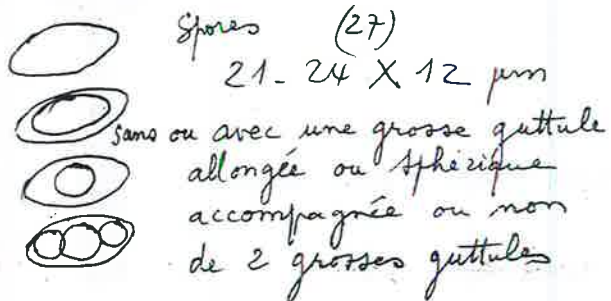 Spores (27)
21 - 24 X 12 µm
sans ou avec une grosse guttule
allongée ou sphérique
accompagnée ou non
de 2 grosses guttules